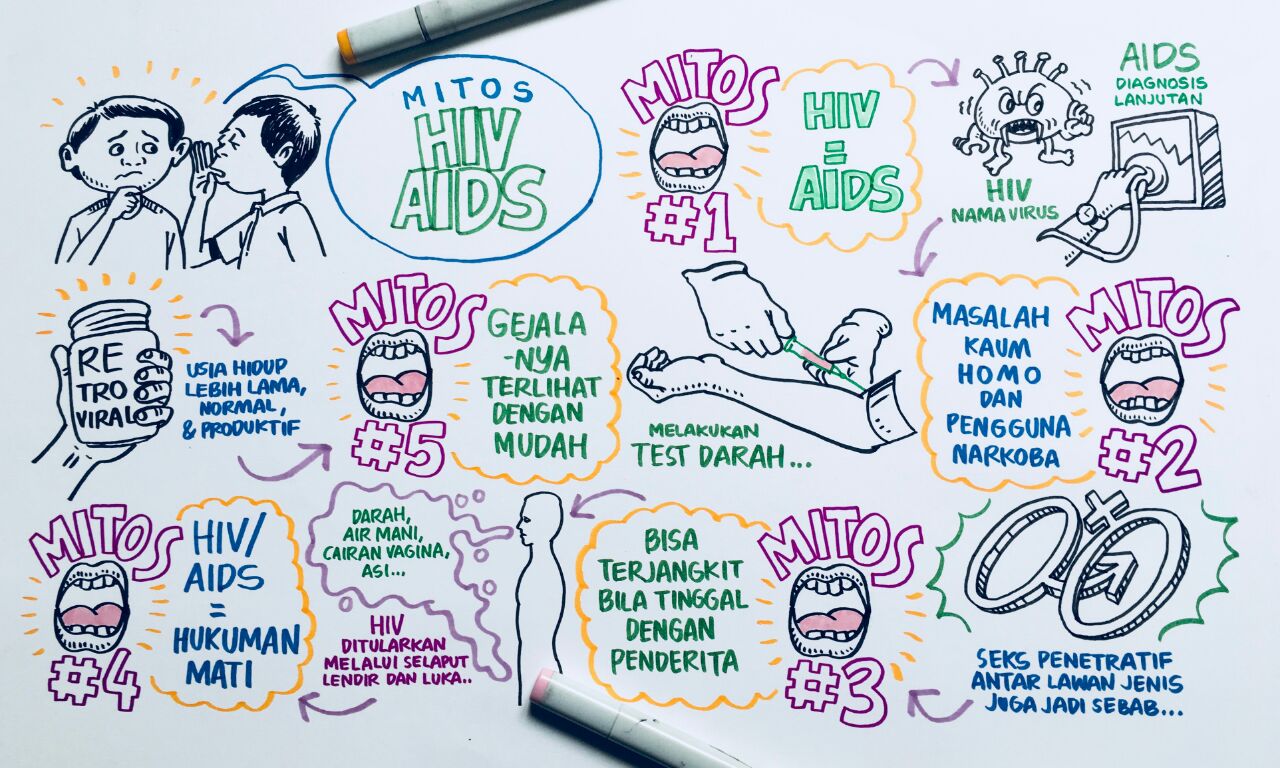 MITOS
HIV
AIDS
MITOS
#1
HIV
=
AIDS
HIV
NAMA VIRUS
AIDS
DIAGNOSIS
LANJUTAN
MITOS
#2
MASALAH
KAUM
HOMO
DAN
PENGGUNA
NARKOBA
SEKS PENETRATIF
ANTAR LAWAN JENIS
JUGA JADI SEBAB...
MITOS
#3
BISA
TERJANGKIT
BILA TINGGAL
DENGAN
PENDERITA
DARAH,
AIR MANI,
CAIRAN VAGINA,
ASI...
HIV
DITULARKAN
MELALUI SELAPUT
LENDIR DAN LUKA..
MITOS
#4
HIV/
AIDS
=
HUKUMAN
MATI
RE
TRO
VIRAL
USIA HIDUP
LEBIH LAMA,
NORMAL,
& PRODUKTIF
MITOS
#5
GEJALA
-NYA
TERLIHAT
DENGAN
MUDAH
MELAKUKAN
TEST DARAH...